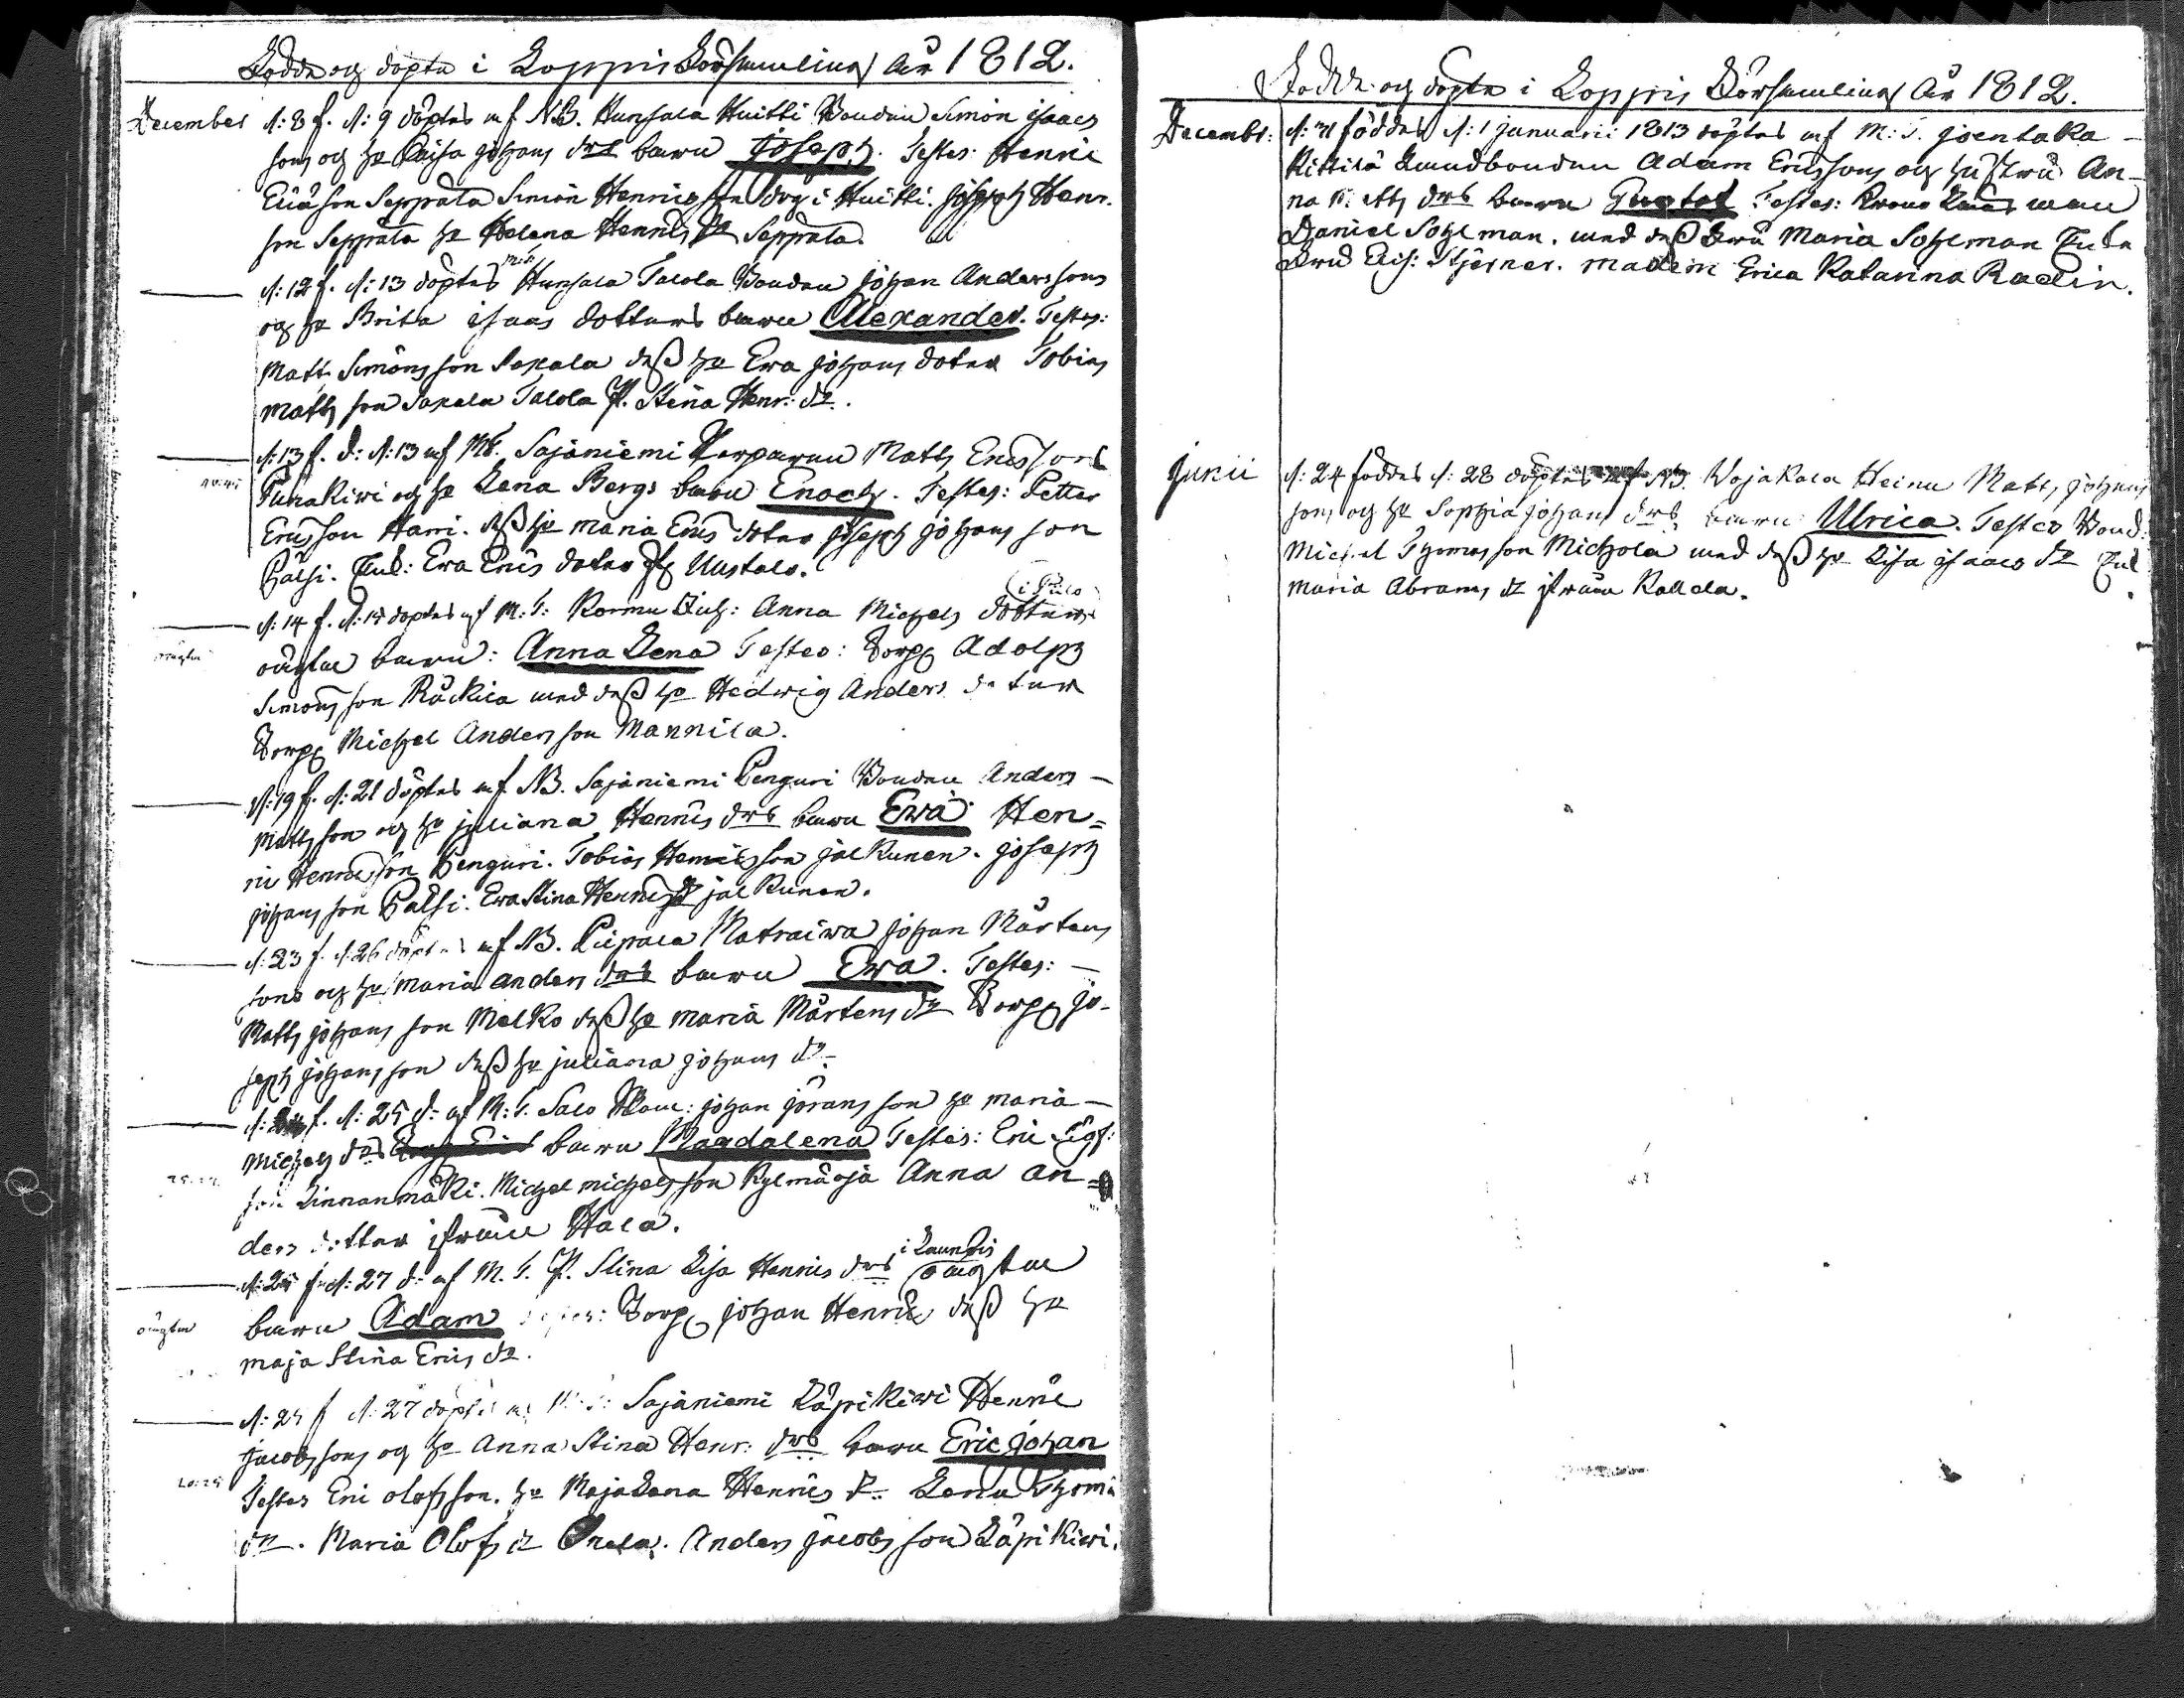 Födde og döpte i Loppis Församling år 1812.
December d: 8 f. d: 9 döptes af NB. Hunsala Huitti Bonden Simon Isaacs
sons og hu Caisa Johans drs barn Joseph. Testes: Henric
Ericsson Seppälä Simon Henricsson Sdrg i Huitti. Joseph Henr.
son Seppälä hu Helena Henrics dr Seppälä.
d: 12 f. d: 13 döptes M.T. Hunsala Talola Bonden Johan Anderssons
og hu Brita Isaacs dotters barn Alexander. Testes:
Matts Simonsson Sakala dess hu Ewa Johans doter Tobias
Mattsson Sakala Talola P. Stina Henr: dr.
d: 13 f. d: d: 13 af MT. Sajaniemi Torparen Matts Ericssons
Punakiwi og hu Lena Bergs barn Enoch. Testes: Petter
Ericsson Harri. dess hu Maria Erics doter Joseph Johansson
Pälsi. Pig: Ewa Erics doter Uustalo.
d: 14 f. d: 15 döptes af M.T: Kormu Pig: Anna Michels dotters (i Pilo)
oägta
oägta barn: Anna Lena Testes: Torp Adolph
Simonsson Räckilä med dess hu Hedwig Anders doter
Torp Michel Andersson Mannila.
d: 19 f. d: 21 döptes af NB. Sajaniemi Penguri Bonden Anders
Mattsson og hu Juliana Henrics drs barn Ewa. Hen=
ric Henricsson Penguri. Tobias Henricsson Jalkunen. Joseph
Johansson Palsi. Ewa Stina Henrics dr Jalkunen.
d: 23 f. d: 26 döptes af NB. Pilpala Matraiwa Johan Mårtens
sons og hu Maria Anders drs barn Ewa. Testes:
Matts Johansson Melko dess hu Maria Mårtens dr Torp Jo-
seph Johansson dess hu Juliana Johans dr
f. d: 25 d: af M:T. Salo Johan Jöransson hu Maria
Michels drs barn Magdalena Testes: Eric
son Linnanmäki. Michel Michelsson Kylmäoja Anna An=
ders dotter ifrån Hala.
d: 25 f. d: 27 d: af M.T. P. Stina Lisa Henrics drs i Launois oägta
oägta
barn Adam Testes: Torp Johan Henric dess hu
Maja Stina Erics dr.
d: 25 f d: 27 döptes af M:T: Sajaniemi Läpikiwi Henric
Jacobssons og hu Anna Stina Henr: drs barn Eric Johan
Testes Eric Olofsson. hu Maja Lena Henrics dr. Lena Thomæ
dr. Maria Olofs dr Onela. Anders Jacobsson Läpikiwi.
Födde og döpte i Loppis Församling År 1812.
Decembr: d: 31 föddes d: 1 Januarii 1813 döptes af M:T. Joentaka
Kittilä Landbonden Adam Ericssons og hustru An-
na Matts drs barn Gustof Testes: Krono Läns man
Daniel Sohlman. med dess Fru Maria Sohlman Enke
Fru Elis: Stjerner. Madem Erica Katarina Radin.
Junii d: 24 föddes d: 28 döptes af NB. Wojakala Heinu Matts Johans
sons og hu Sophia Johans drs barn Ulrica. Testes Bond:
Michel Thomasson Michola med dess hu Lisa Isaacs dr
Maria Abrams dr ifrån Kallela.